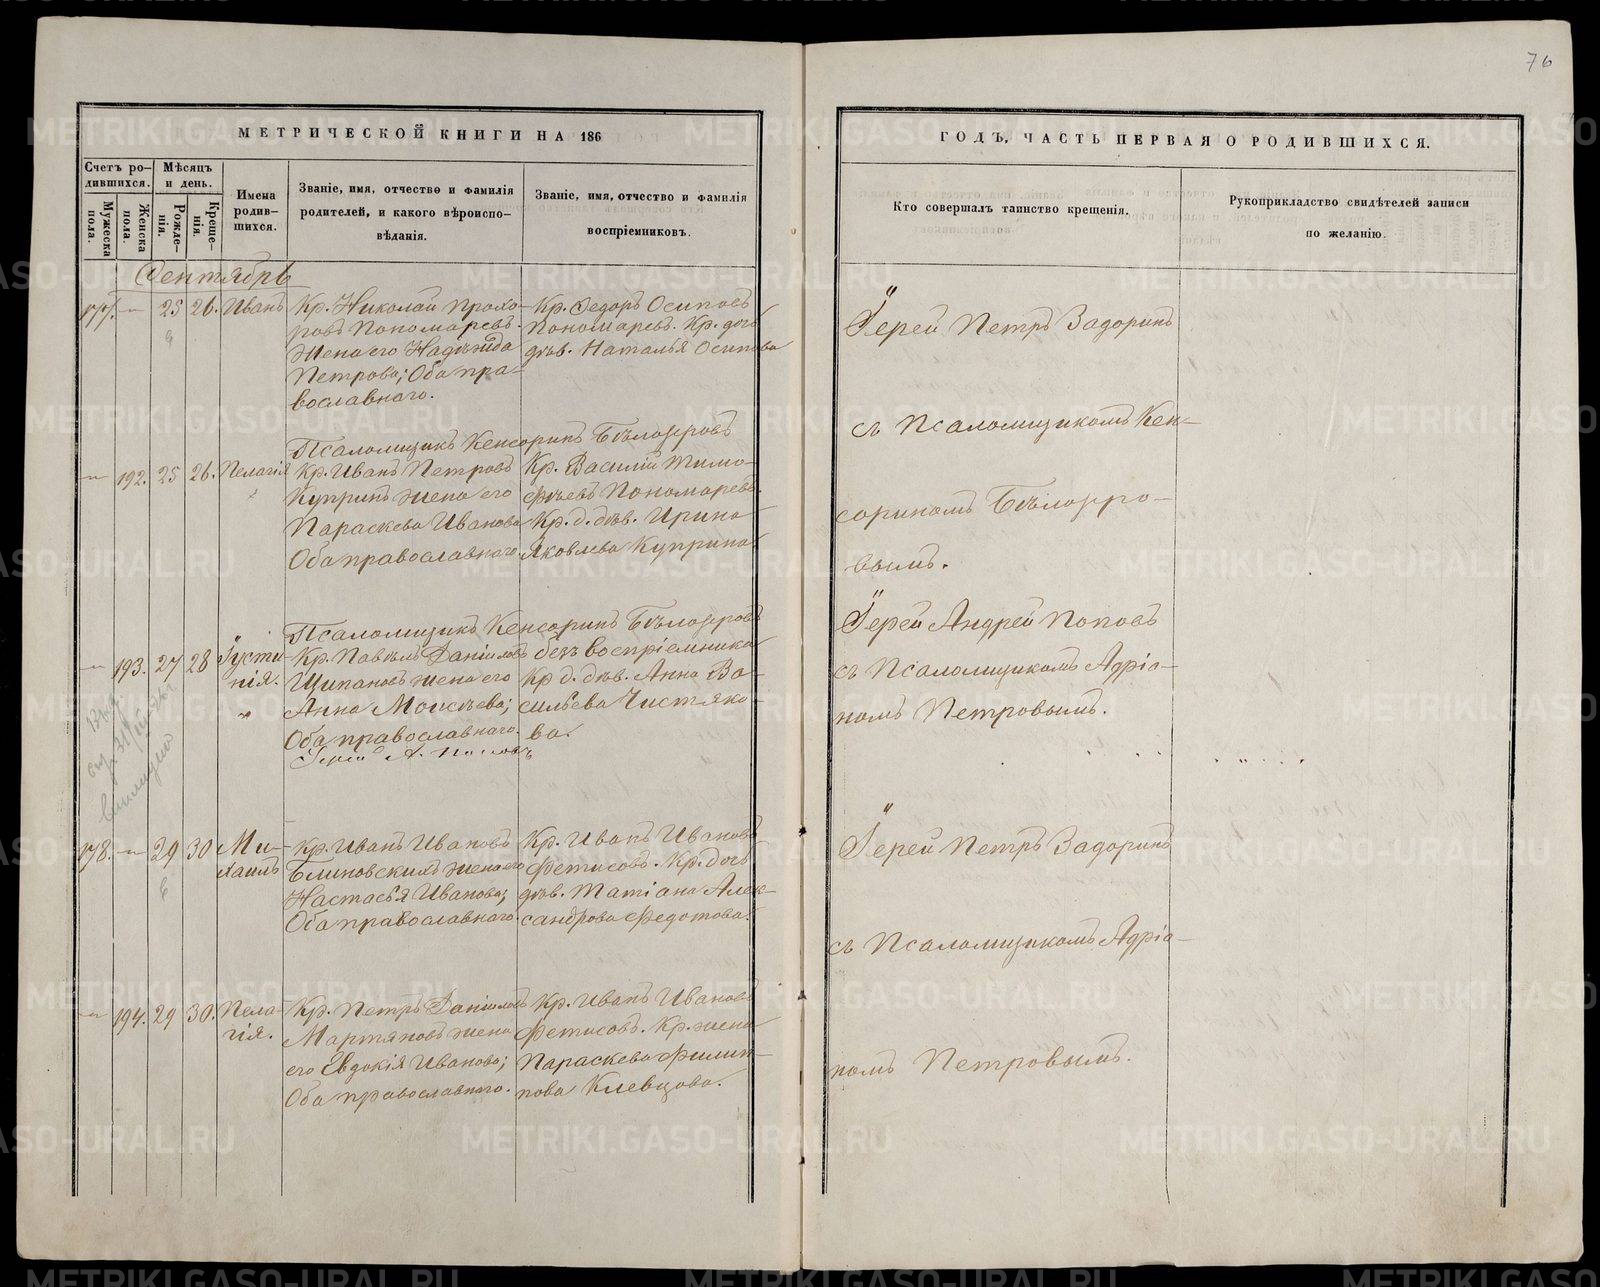 76
МЕТРИЧЕСКОЙ КНИГИ НА 186
ГОДЪ, ЧАСТЬ ПЕРВАЯ О РОДИВШИХСЯ.
Счетъ ро-
дившихся.
Мужеска
пола.
Женска
пола.
Мѣсяцъ
и день.
Рожде-
нія.
Креще-
нія.
Имена
родив-
шихся.
Званіе, имя, отчество и фамилія
родителей, и какого вѣроиспо-
вѣданія.
Званіе, имя, отчество и фамилія
воспріемниковъ.
Кто совершалъ таинство крещенія.
Рукоприкладство свидѣтелей записи
по желанію.
Сентябрь
177. 25 26. Иванъ
Кр. Николай Прохо-
ровъ Пономаревъ.
Жена его Надежда
Петрова; Оба пра-
вославнаго.
Кр. Федоръ Осиповъ
Пономаревъ. Кр. дочь
дѣв. Наталья Осипова
Іерей Петръ Задоринъ
съ Псаломщикомъ Кен-
сориномъ Бѣлозеро-
вымъ.
Псаломщикъ Кенсоринъ Бѣлозеровъ
192. 25 26. Пелагія
Кр. Иванъ Петровъ
Купринъ жена его
Параскева Иванова
Оба православнаго.
Кр. Василій Тимо-
феевъ Пономаревъ.
Кр. д. дѣв. Ирина
Яковлева Куприна
Псаломщикъ Кенсоринъ Бѣлозеровъ
193. 27 28 Іусти-
нія.
Кр. Павелъ Даниловъ
Щипановъ жена его
Анна Моисѣева;
Оба православнаго.
Іерей А. Поповъ
безъ воспріемника
Кр. д. дѣв. Анна Ва-
сильева Чистяко-
ва.
Іерей Андрей Поповъ
съ Псаломщикомъ Адріа-
номъ Петровымъ.
178. 29 30 Ми-
хаилъ
Кр. Иванъ Ивановъ
Блиновскихъ жена его
Настасья Иванова;
Оба православнаго.
Кр. Иванъ Ивановъ
Фетисовъ. Кр. дочь
дѣв. Татіана Алек-
сандрова Федотова.
Іерей Петръ Задоринъ
съ Псаломщикомъ Адріа-
номъ Петровымъ.
194. 29 30. Пела-
гія.
Кр. Петръ Даниловъ
Мартяновъ жена
его Евдокія Иванова;
Оба православнаго.
Кр. Иванъ Ивановъ
Фетисовъ. Кр. жена
Параскева Филип-
пова Клевцова.
METRIKI.GASO-URAL.RU